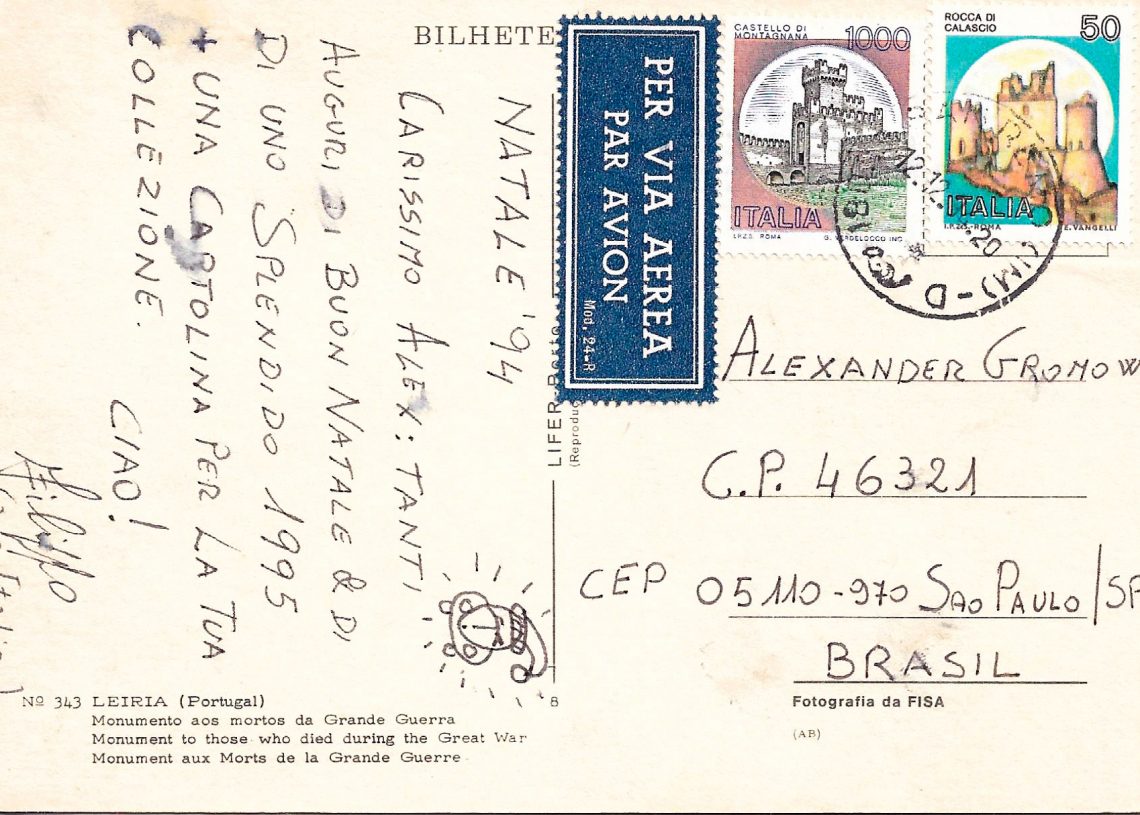 BILHETE
NATALE '94
CARISSIMO ALEX: TANTI
AUGURI DI BUON NATALE & DI
DI UNO SPLENDIDO 1995
+ UNA CARTOLINA PER LA TUA
COLLEZIONE.
CIAO!
Filippo
PER VIA AEREA
PAR AVION
Mod. 24-R
CASTELLO DI
MONTAGNANA
1000
ITALIA
I.P.Z.S. ROMA G. VERDELOCCO INC.
ROCCA DI
CALASCIO
50
ITALIA
I.P.Z.S.-ROMA E. VANGELLI
LIFER
(Reproduç
ALEXANDER GROMOW
C.P. 46321
CEP 05110-970 SAO PAULO/SP
BRASIL
Nº 343 LEIRIA (Portugal)
Monumento aos mortos da Grande Guerra
Monument to those who died during the Great War
Monument aux Morts de la Grande Guerre
8
Fotografia da FISA
(AB)